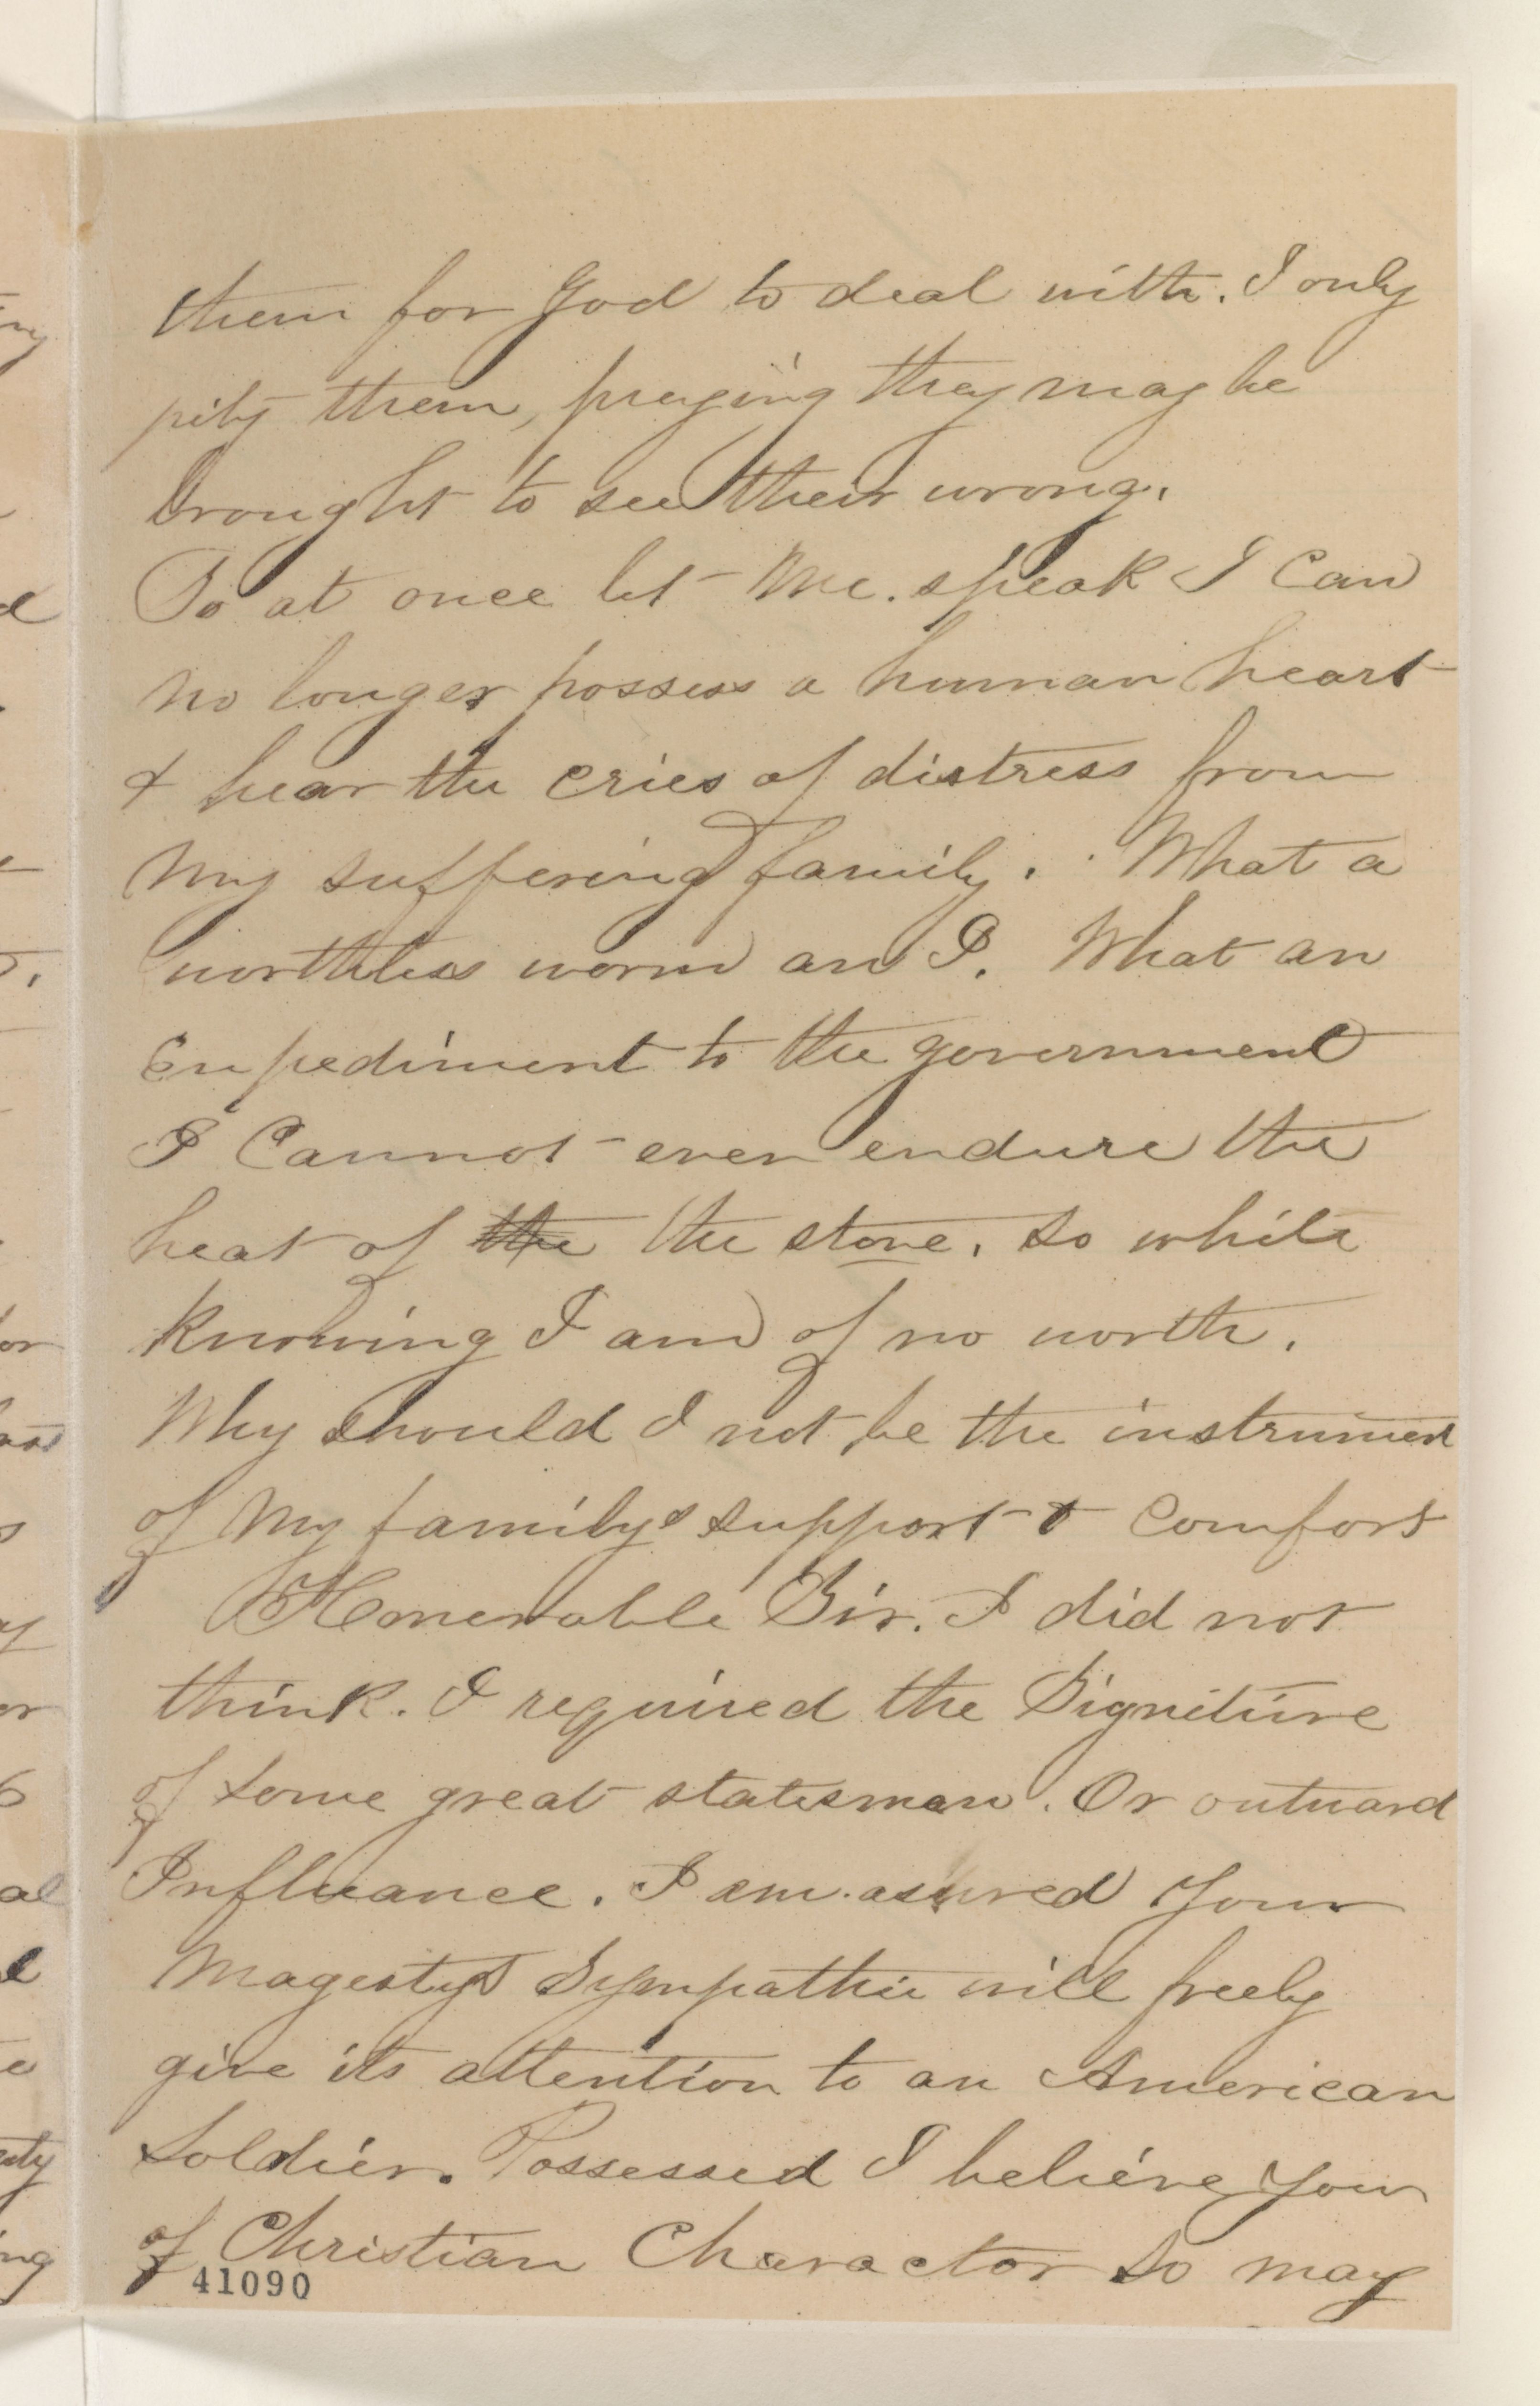 them for God to deal with. I only
pity them, praying they may be
brought to see their wrong.
So at once let me. speak I Can
no longer possess a human heart
& hear the cries of distress from
my suffering family. What a
worthless worm am I. What an
Enpediment to the government
I Cannot even endure the
heat of the the stove. so while
knowing I am of no worth.
Why should I not be the instrument
of my family's support & Comfort
Honerable Sir. I did not
think. I required the Signiture
of some great statesman. Or outward
Influance. I am. assured your
Magesty's Sympathie will freely
give its attention to an American
Soldier. Possessed I believe you
of Christian Charactor so may
41090